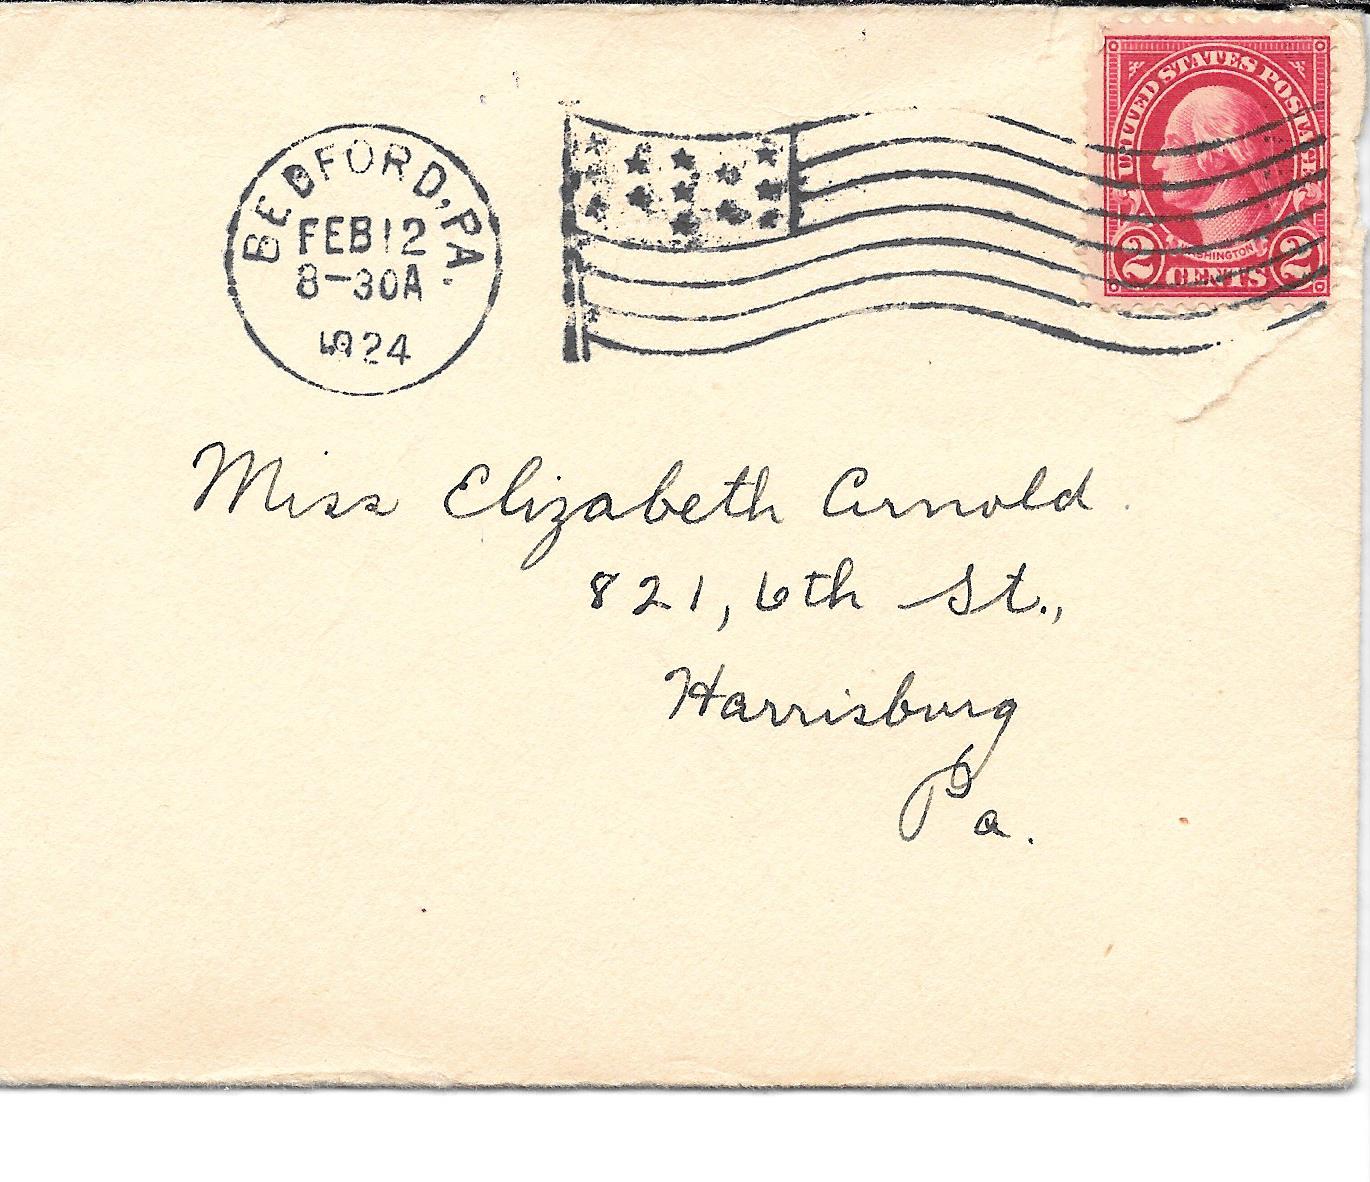 BEDFORD, PA.
FEB 12
8-30A
1924
UNITED STATES POSTAGE
WASHINGTON
2 CENTS 2
Miss Elizabeth Arnold.
821, 6th St.,
Harrisburg
Pa.